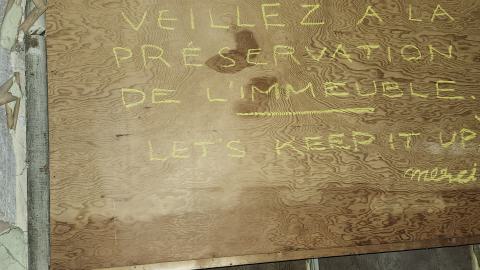 VEILLEZ A LA
PRÉSERVATION
DE L'IMMEUBLE.
LET'S KEEP IT UP
merci